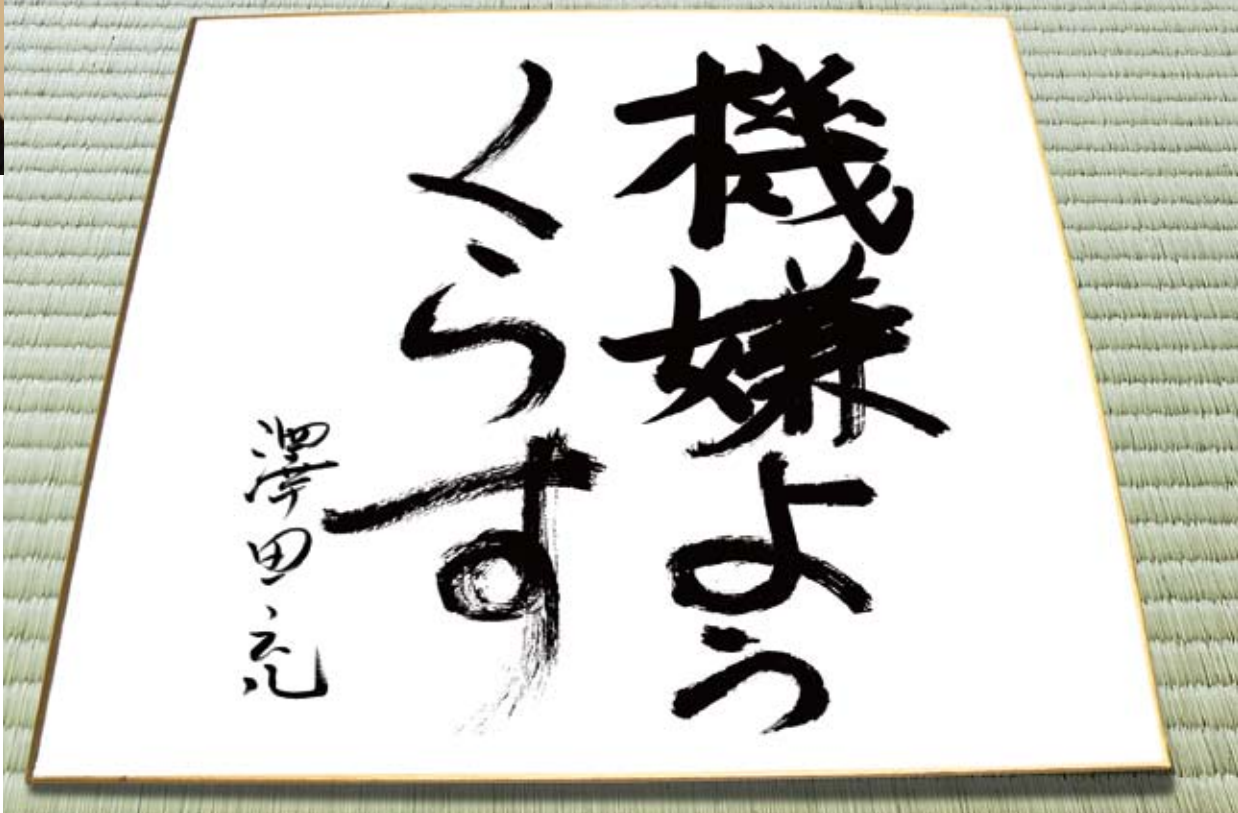 機嫌よう
くらす
澤田充